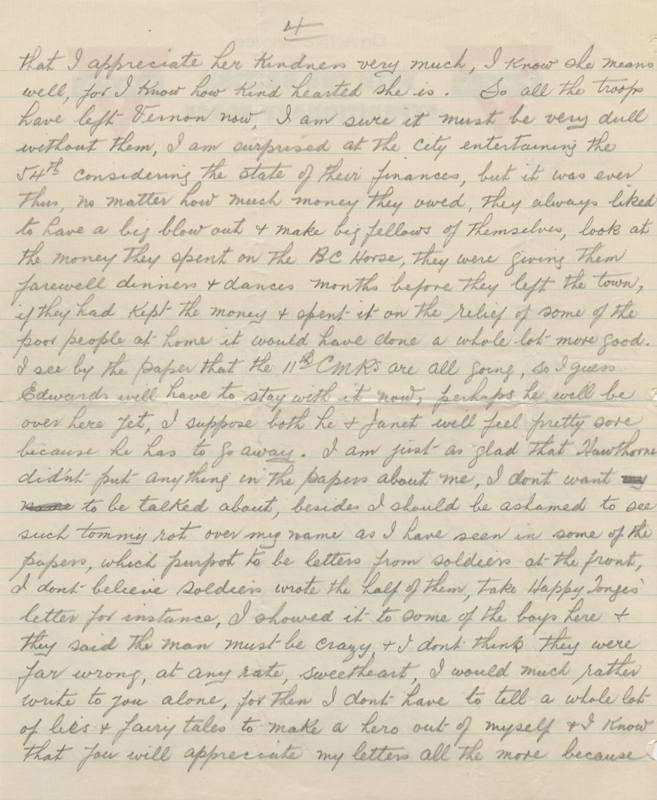 4
that I appreciate her kindness very much, I know she means
well, for I know how kind hearted she is. So all the troops
have left Vernon now, I am sure it must be very dull
without them, I am surprised at the city entertaining the
54th considering the state of their finances, but it was ever
thus, no matter how much money they owed, they always liked
to have a big blow out & make big fellows of themselves, look at
the money they spent on the BC Horse, they were giving them
farewell dinners & dances months before they left the town,
if they had kept the money & spent it on the relief of some of the
poor people at home it would have done a whole lot more good.
I see by the paper that the 11th CMRs are all going, so I guess
Edwards will have to stay with it now, perhaps he will be
over here yet, I suppose both he & Janet will feel pretty sore
because he has to go away. I am just as glad that Hawthorne
didn't put anything in the papers about me, I dont want my
name to be talked about, besides I should be ashamed to see
such tommy rot over my name as I have seen in some of the
papers, which purpot to be letters from soldiers at the front,
I dont believe soldiers wrote the half of them, take Happy Tonges'
letter for instance, I showed it to some of the boys here &
they said the man must be crazy, & I dont think they were
far wrong, at any rate, sweetheart, I would much rather
write to you alone, for then I dont have to tell a whole lot
of lies & fairy tales to make a hero out of myself & I know
that you will appreciate my letters all the more because